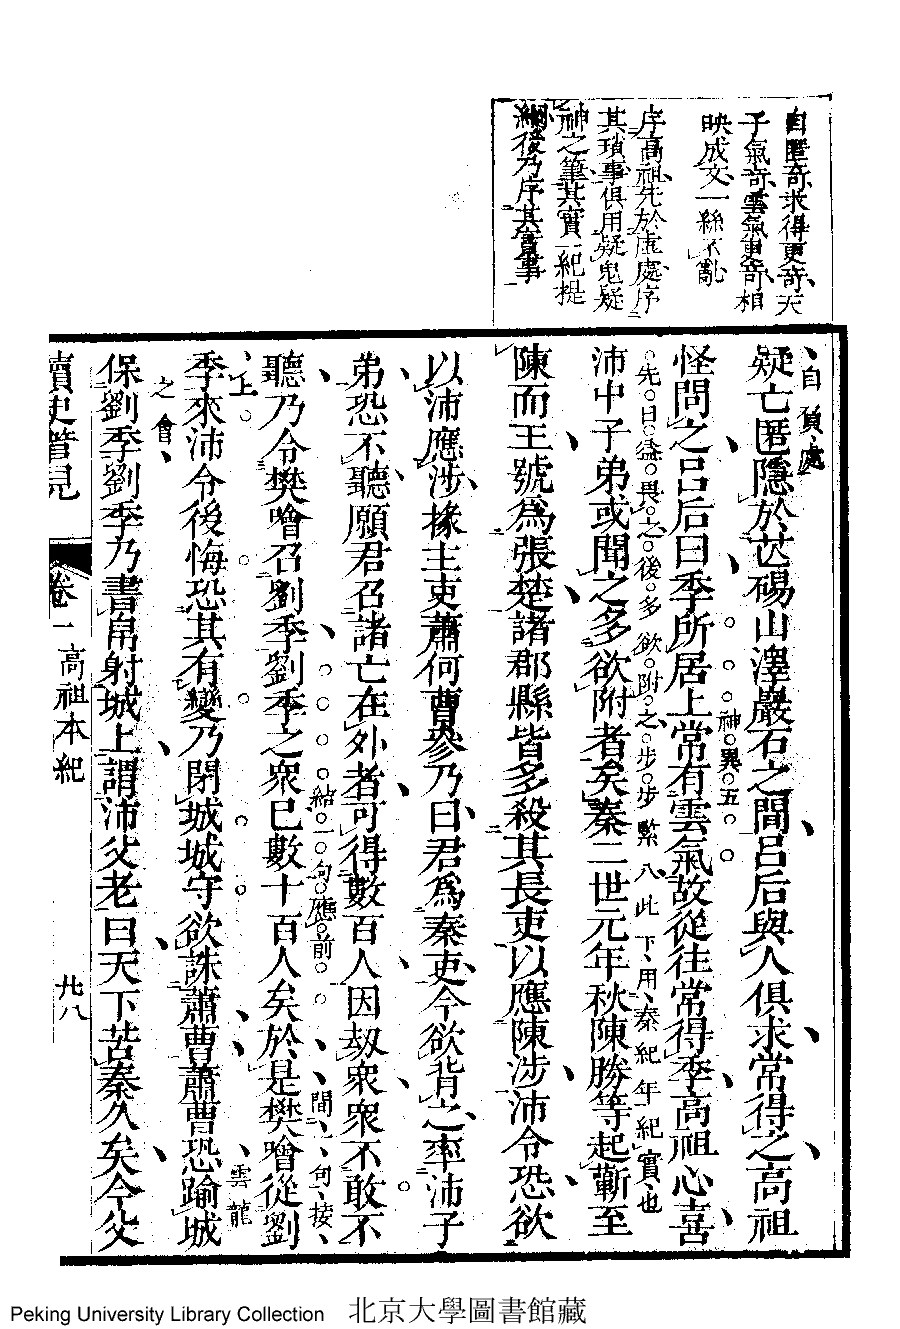 自匿奇求得更奇天
子氣奇雲氣更奇相
映成文一絲不亂
序高祖先於虛處序
其瑣事俱用疑鬼疑
神之筆其實一紀提
綱後乃序其實事
疑亡匿隱於芒碭山澤巖石之間呂后與人俱求常得之高祖
自負處
怪問之呂后曰季所居上常有雲氣故從往常得季高祖心喜
神異五
沛中子弟或聞之多欲附者矣秦二世元年秋陳勝等起蘄至
先曰益畏之後多欲附之步步緊入此下用秦紀年紀實也
陳而王號爲張楚諸郡縣皆多殺其長吏以應陳涉沛令恐欲
以沛應涉掾主吏蕭何曹參乃曰君爲秦吏今欲背之率沛子
弟恐不聽願君召諸亡在外者可得數百人因劫衆衆不敢不
聽乃令樊噲召劉季劉季之衆已數十百人矣於是樊噲從劉
結一句應前間句接
季來沛令後悔恐其有變乃閉城城守欲誅蕭曹蕭曹恐踰城
上雲龍
保劉季劉季乃書帛射城上謂沛父老曰天下苦秦久矣今父
之會
讀史管見 卷一 高祖本紀 廿八
Peking University Library Collection 北京大學圖書館藏